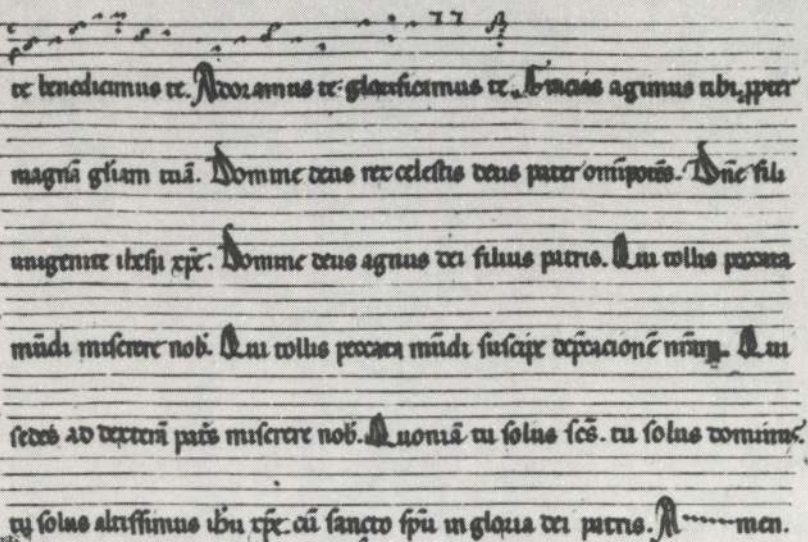 te benedicimus te. Adoramus te. glorificamus te. Gracias agimus tibi ꝓpter
magnā gl̄iam tuā. Domine deus rex celestis deus pater om̄ipotēs. Dn̄e fili
unigenite ihesu xp̄e. Domine deus agnus dei filius patris. Qui tollis peccata
mūdi miserere nob̾. Qui tollis peccata mūdi suscipe dep̄cacionē nr̄am. Qui
sedes ad dexterā pat̾s miserere nob̾. Quoniā tu solus sc̄s. tu solus dominus.
tu solus altissimus ih̄u xp̄e. cū sancto sp̄u in gloria dei patris. A men.